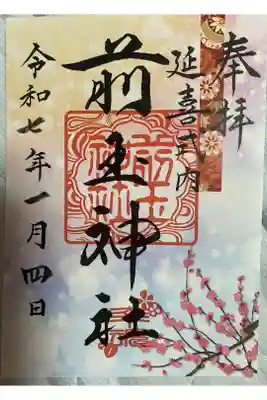 奉拝
延喜式内
前玉神社
令和七年一月四日
前玉神社